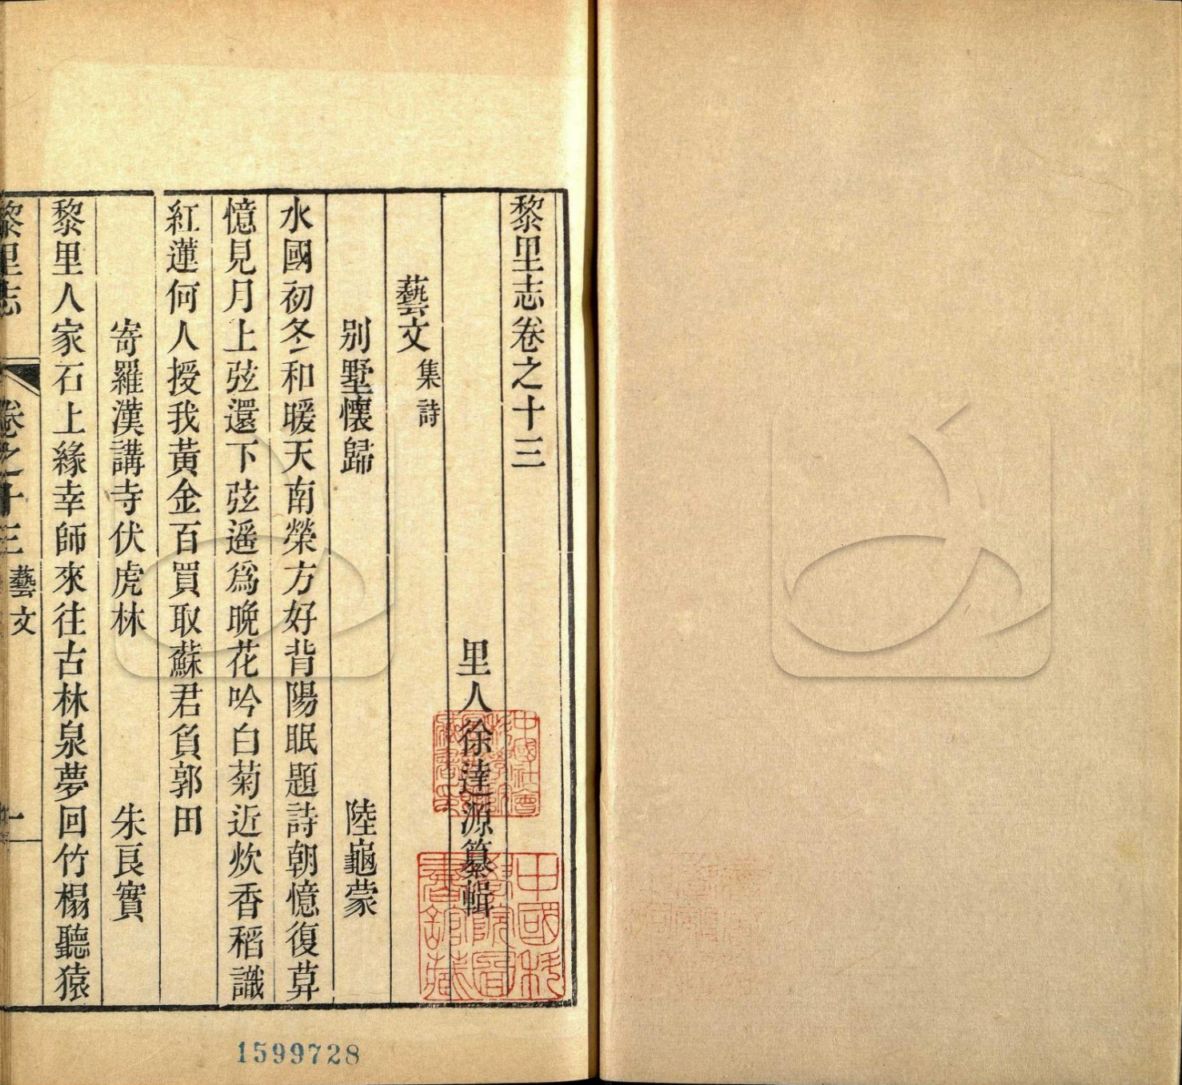 黎里志卷之十三
里人徐達源纂輯
藝文 集詩
別墅懷歸 陸龜蒙
水國初冬和暖天南榮方好背陽眠題詩朝憶復暮
憶見月上弦還下弦遥爲晚花吟白菊近炊香稻識
紅蓮何人授我黃金百買取蘇君負郭田
寄羅漢講寺伏虎林 朱良實
黎里人家石上緣幸師來往古林泉夢回竹榻聽猿
黎里志 卷之十三 藝文 一
中國科學院圖書館藏
1599728